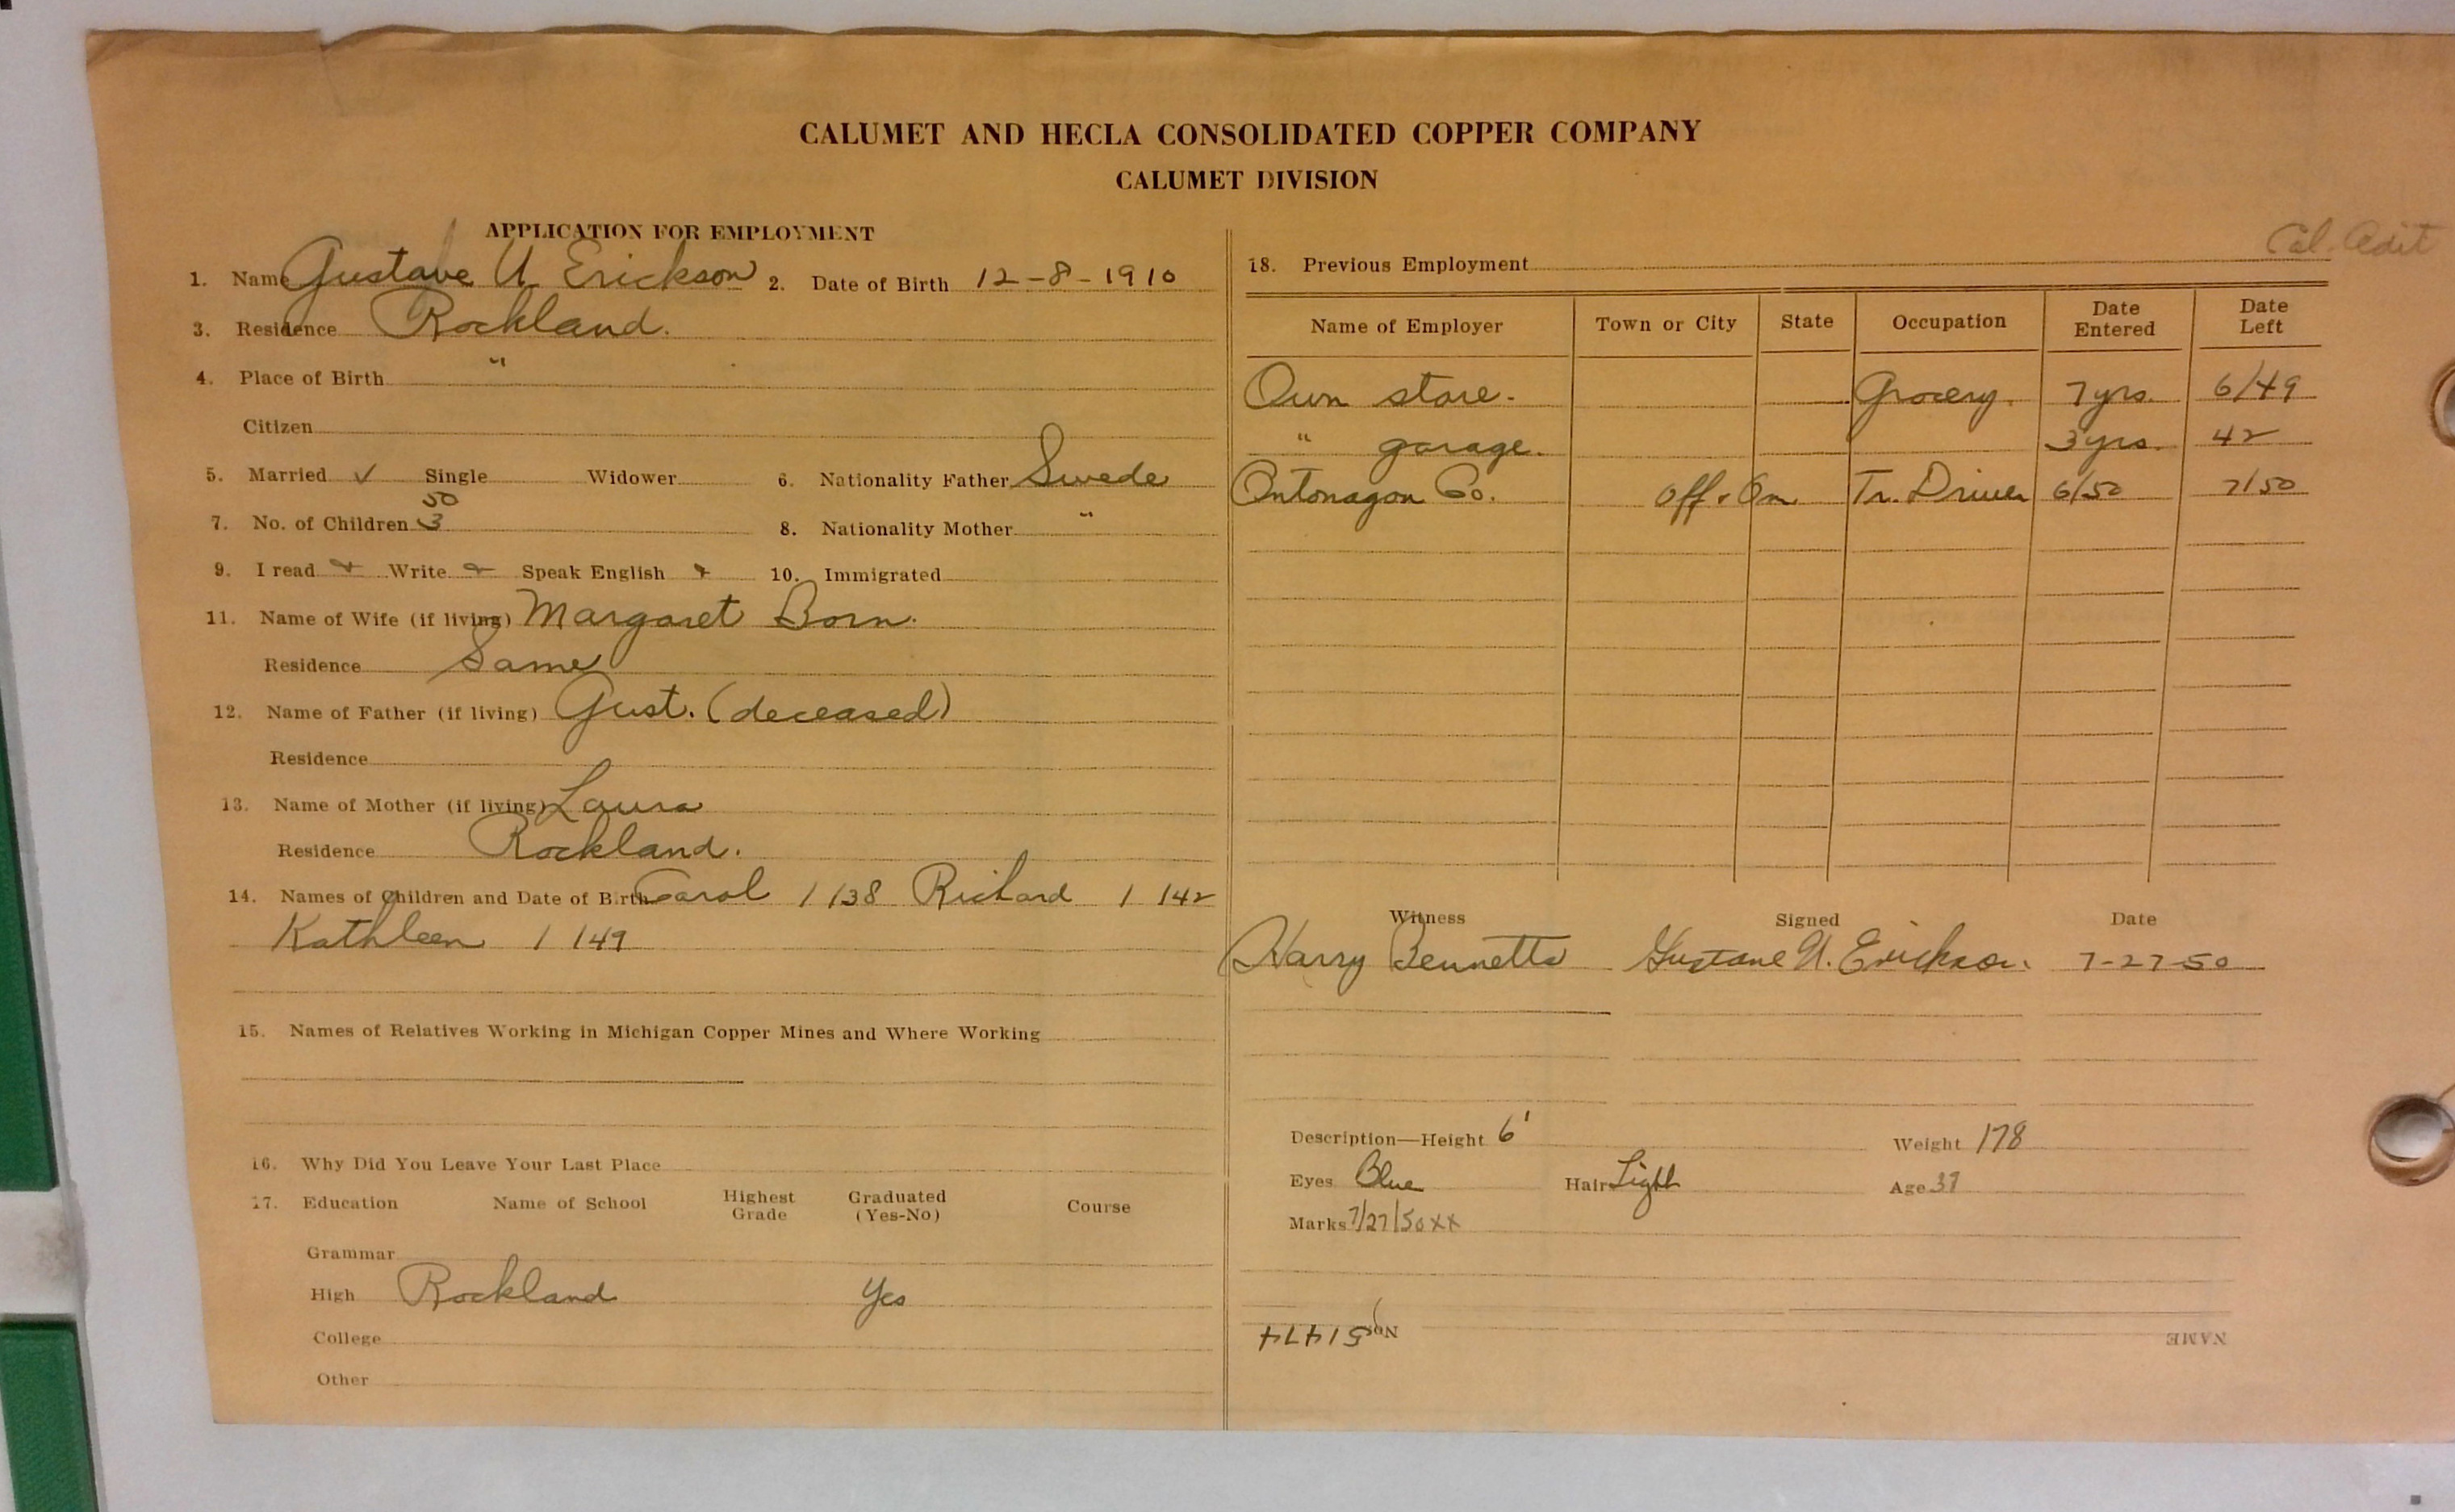 CALUMET AND HECLA CONSOLIDATED COPPER COMPANY
CALUMET DIVISION
APPLICATION FOR EMPLOYMENT
1. Name Gustave U. Erickson 2. Date of Birth 12-8-1910
3. Residence Rockland.
4. Place of Birth "
Citizen
5. Married ✓ Single Widower 6. Nationality Father Swede
50
7. No. of Children 3 8. Nationality Mother "
9. I read Write Speak English 10. Immigrated
11. Name of Wife (if living) Margaret Born.
Residence Same
12. Name of Father (if living) Gust. (deceased)
Residence
13. Name of Mother (if living) Laura
Residence Rockland.
14. Names of Children and Date of Birth Carol 1/38 Richard 1/42
Kathleen 1/49
15. Names of Relatives Working in Michigan Copper Mines and Where Working
16. Why Did You Leave Your Last Place
17. Education Name of School Highest Grade Graduated (Yes-No) Course
Grammar
High Rockland Yes
College
Other
Cal. Adit
18. Previous Employment
Name of Employer Town or City State Occupation Date Entered Date Left
Own store. Grocery. 7 yrs. 6/49
" garage. 3 yrs. 42
Ontonagon Co. Off & On Tr. Driver 6/50 7/50
Witness Signed Date
Harry Bennetts Gustave U. Erickson. 7-27-50
Description—Height 6' Weight 178
Eyes Blue Hair Light Age 39
Marks 7/27/50 XX
No. 51474 NAME